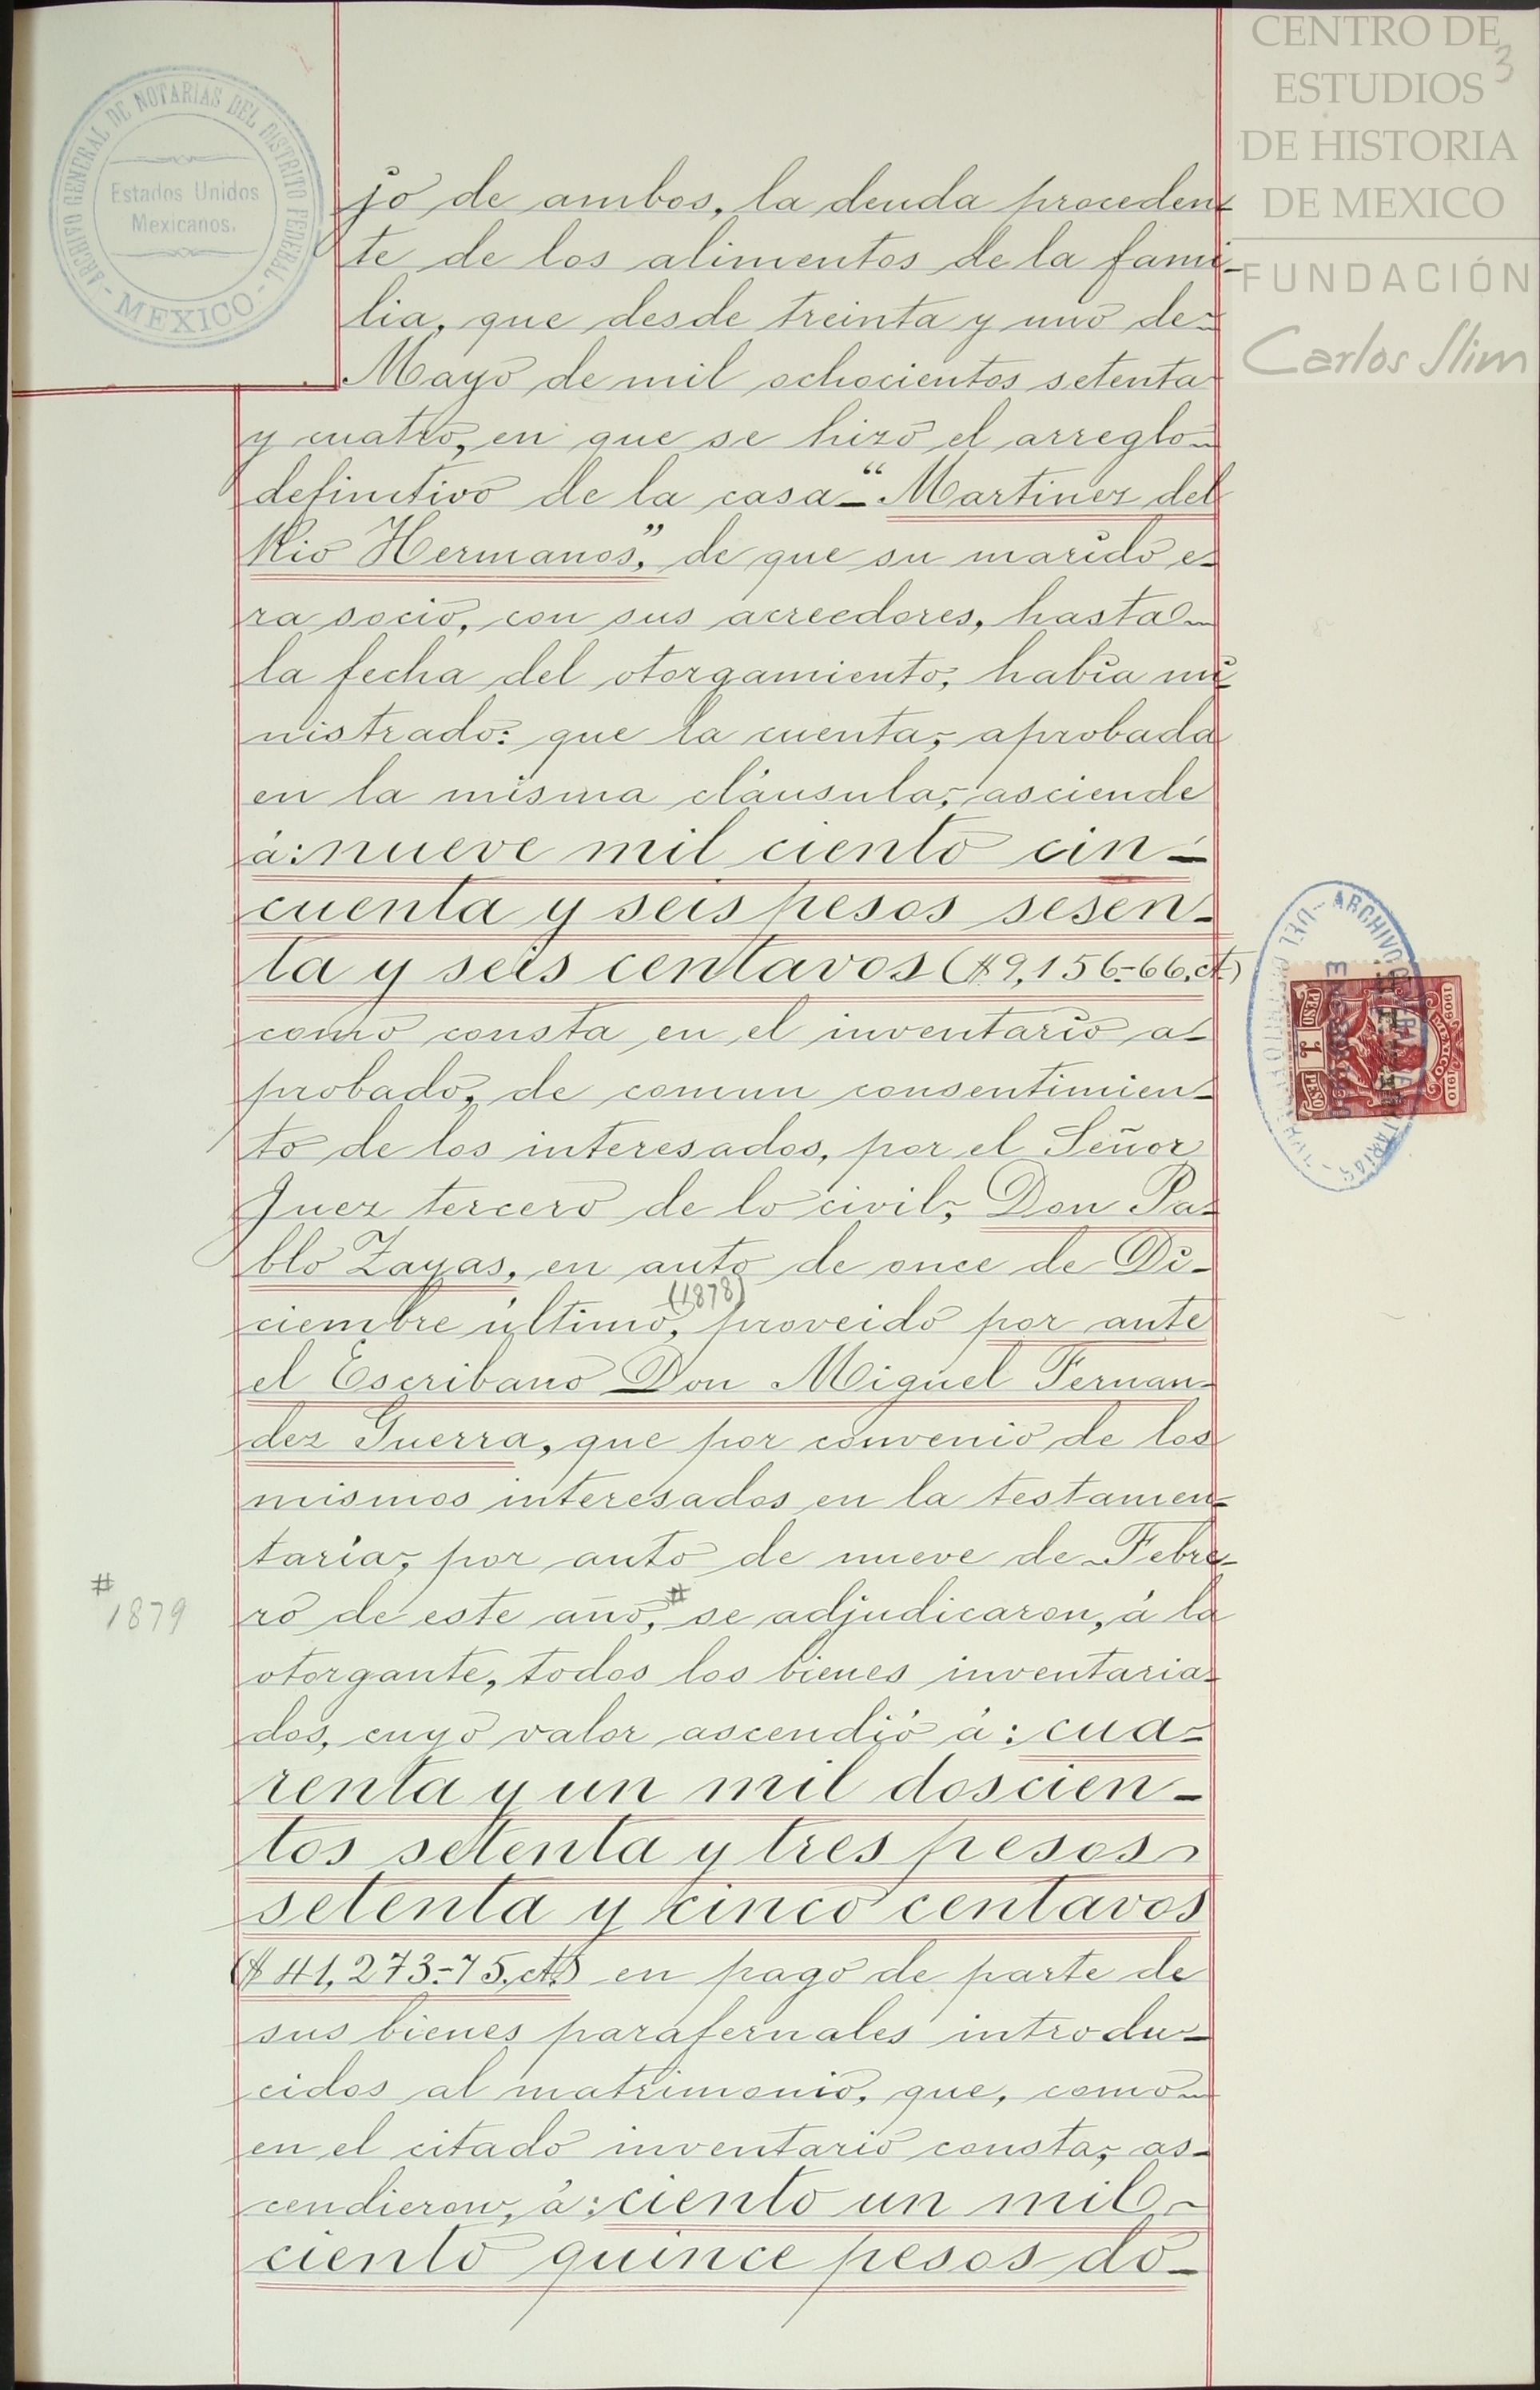 CENTRO DE
ESTUDIOS
DE HISTORIA
DE MEXICO
FUNDACIÓN
Carlos Slim
3
ARCHIVO GENERAL DE NOTARIAS DEL DISTRITO FEDERAL
Estados Unidos
Mexicanos.
- MEXICO. -
jo de ambos, la deuda proceden-
te de los alimentos de la fami-
lia, que desde treinta y uno de-
Mayo de mil ochocientos setenta
y cuatro, en que se hizo el arreglo-
definitivo de la casa-“Martinez del
Rio Hermanos”, de que su marido e-
ra socio, con sus acreedores, hasta-
la fecha del otorgamiento, habia mi-
nistrado: que la cuenta, aprobada
en la misma cláusula, asciende
á: nueve mil ciento cin-
cuenta y seis pesos sesen-
ta y seis centavos ($9,156-66,ct)
como consta en el inventario a-
probado, de comun consentimien-
to de los interesados, por el Señor
Juez tercero de lo civil, Don Pa-
blo Zayas, en auto de once de Di-
(1878)
ciembre último, proveido por ante
el Escribano Don Miguel Fernan-
dez Guerra, que por convenio de los
mismos interesados en la testamen-
taria, por auto de nueve de Febre-
#
1879
ro de este año,# se adjudicaron, á la
otorgante, todos los bienes inventaria-
dos, cuyo valor ascendió á: cua-
renta y un mil doscien-
tos setenta y tres pesos
setenta y cinco centavos
($41,273-75,ct.) en pago de parte de
sus bienes parafernales introdu-
cidos al matrimonio, que, como-
en el citado inventario consta, as-
cendieron, á: ciento un mil-
ciento quince pesos do-
1909 MEXICO 1910
PESO 1 PESO